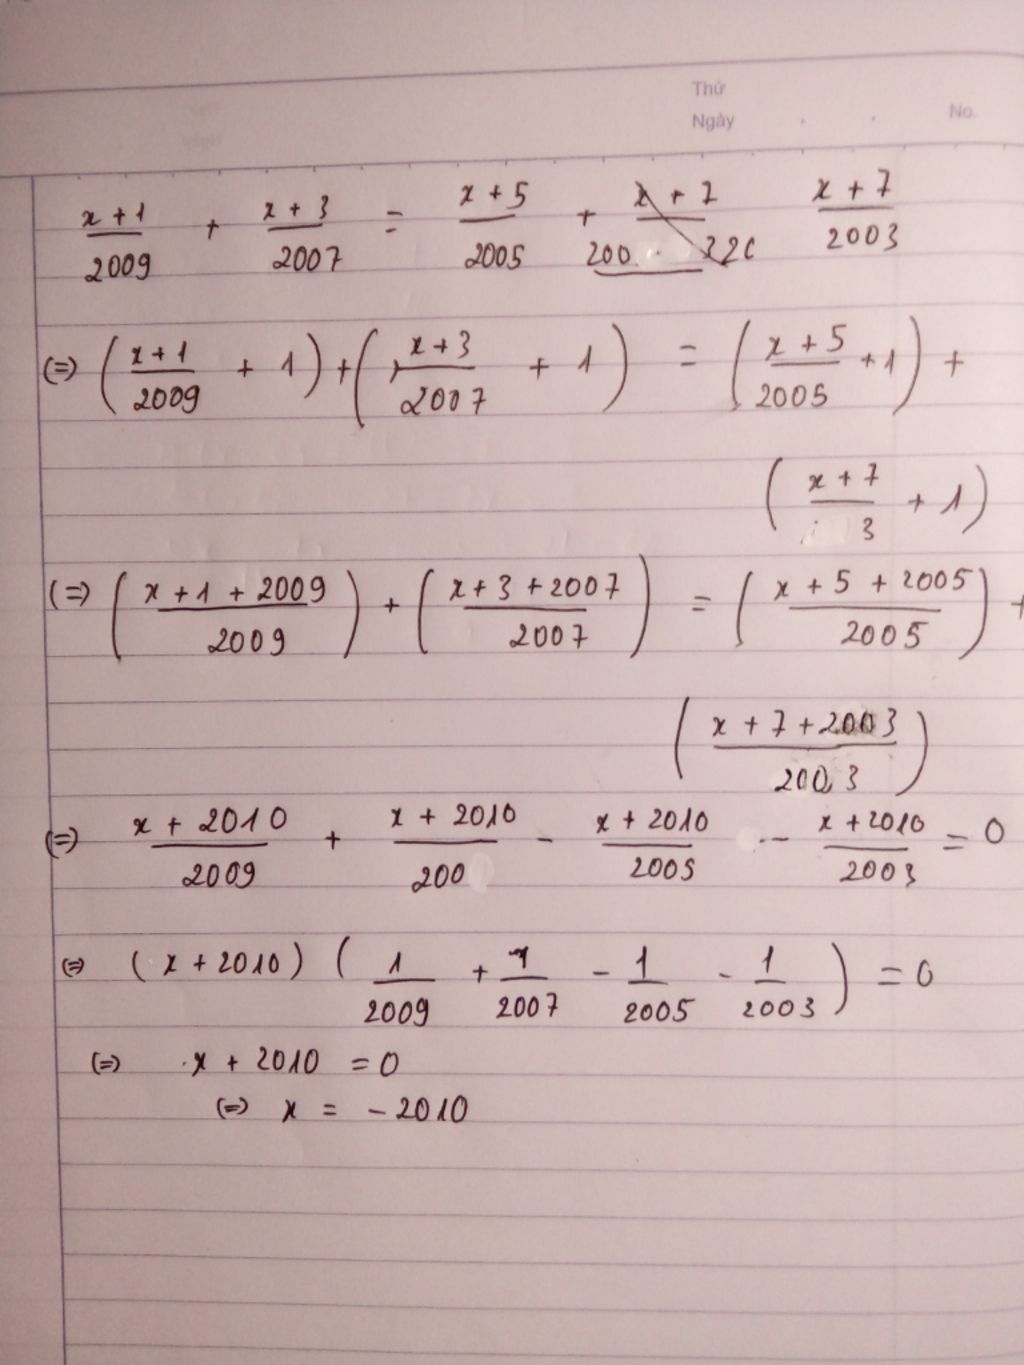 Thứ
Ngày No.
x+1/2009 + x+3/2007 = x+5/2005 + x+7/200 x+7/2003
(=) (x+1/2009 + 1) + (x+3/2007 + 1) = (x+5/2005 + 1) +
(x+7/3 + 1)
(=) (x+1+2009/2009) + (x+3+2007/2007) = (x+5+2005/2005) +
(x+7+2003/2003)
(=) x+2010/2009 + x+2010/200 - x+2010/2005 - x+2010/2003 = 0
(=) (x+2010) (1/2009 + 1/2007 - 1/2005 - 1/2003) = 0
(=) x + 2010 = 0
(=) x = - 2010